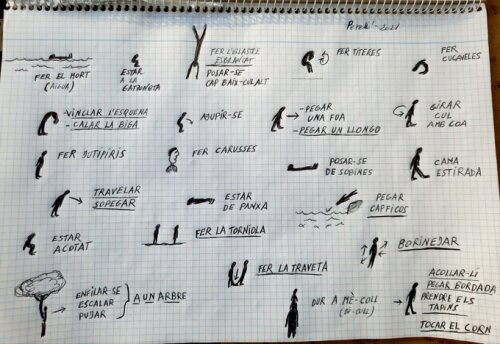 Perelló - 2021
FER EL MORT
(AIGUA)
ESTAR
A LA
GATZONETA
FER L'ELASTRE
ESBRANCAT
POSAR-SE
CAP BAIX-CULALT
FER TITERES
FER
CUCAVELES
-VINCLAR L'ESQUENA
-CALAR LA BIGA
AJUPIR-SE
-PEGAR
UNA FUA
-PEGAR UN LLONGO
GIRAR
CUL
AMB COA
FER BOTIPIRIS
FER CARUSSES
POSAR-SE
DE SOBINES
CAMA
ESTIRADA
TRAVELAR
SOPEGAR
ESTAR
DE PANXA
PEGAR
CAPFICOS
ESTAR
ACOTAT
FER LA TORNIOLA
BORINEJAR
FER LA TRAVETA
ENFILAR-SE
ESCALAR
PUJAR
A UN ARBRE
DUR A MÈ-COLL
ACOLLAR-LI
PEGAR BORDADA
PRENDRE ELS
TAPINS
TOCAR EL CORN